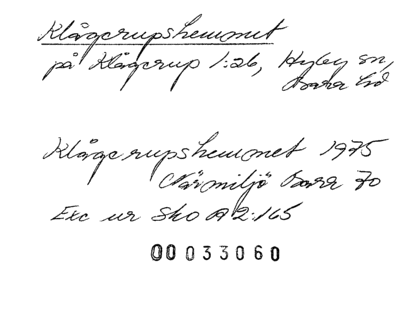 Klågerupshemmet
på Klågerup 1:26, Hyby sn,
Bara hd
Klågerupshemmet 1975
Närmiljö Bara 70
Exc ur Sko A 2:165
00033060